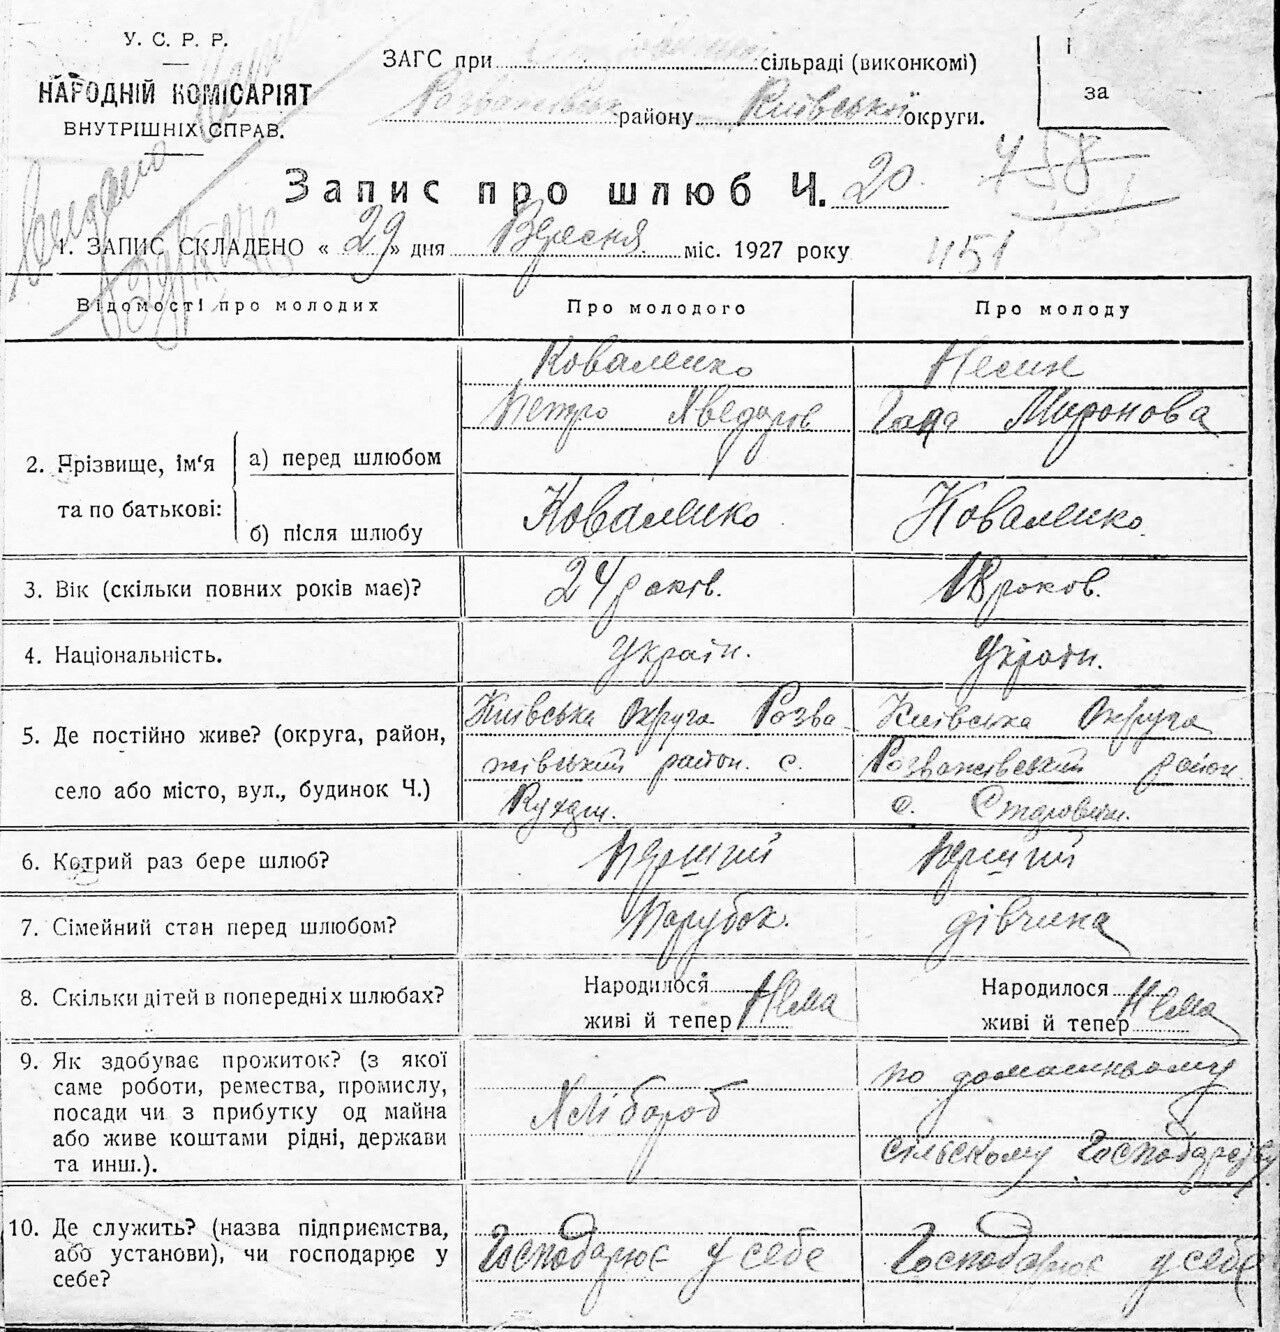 У. С. Р. Р.
НАРОДНІЙ КОМІСАРІЯТ
ВНУТРІШНІХ СПРАВ.
ЗАГС при сільраді (виконкомі)
Розважівськ району Київської округи.
І
за
Запис про шлюб Ч. 20
458
451
1. ЗАПИС СКЛАДЕНО « 29 » дня Вересня міс. 1927 року
Відомості про молодих
Про молодого
Про молоду
2. Прізвище, ім'я та по батькові:
а) перед шлюбом
Коваленко
Петро Хведоров
Несин
Мировова
б) після шлюбу
Коваленко
Коваленко
3. Вік (скільки повних років має)?
24 роков.
18 роков.
4. Національність.
Україн.
Україн.
5. Де постійно живе? (округа, район,
село або місто, вул., будинок Ч.)
Київська Округа Розва
жівський район. с.
Київська Округа
Розважівський район
с.
6. Котрий раз бере шлюб?
Перший
Перший
7. Сімейний стан перед шлюбом?
Парубок.
дівчина
8. Скільки дітей в попередніх шлюбах?
Народилося
живі й тепер Нема
Народилося
живі й тепер Нема
9. Як здобуває прожиток? (з якої
саме роботи, ремества, промислу,
посади чи з прибутку од майна
або живе коштами рідні, держави
та инш.).
Хлібороб
по домашньому
сільскому Господарству
10. Де служить? (назва підприємства,
або установи), чи господарює у
себе?
Господарює у себе
Господарює у себе